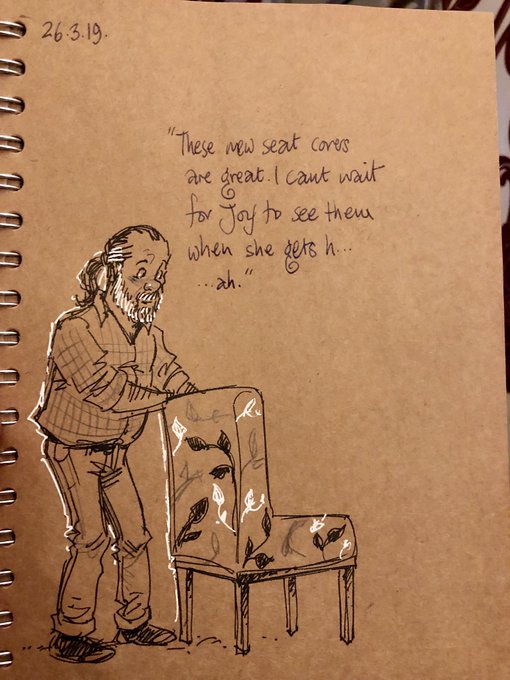 26.3.19.
"These new seat covers
are great. I cant wait
for Joy to see them
when she gets h...
...ah."